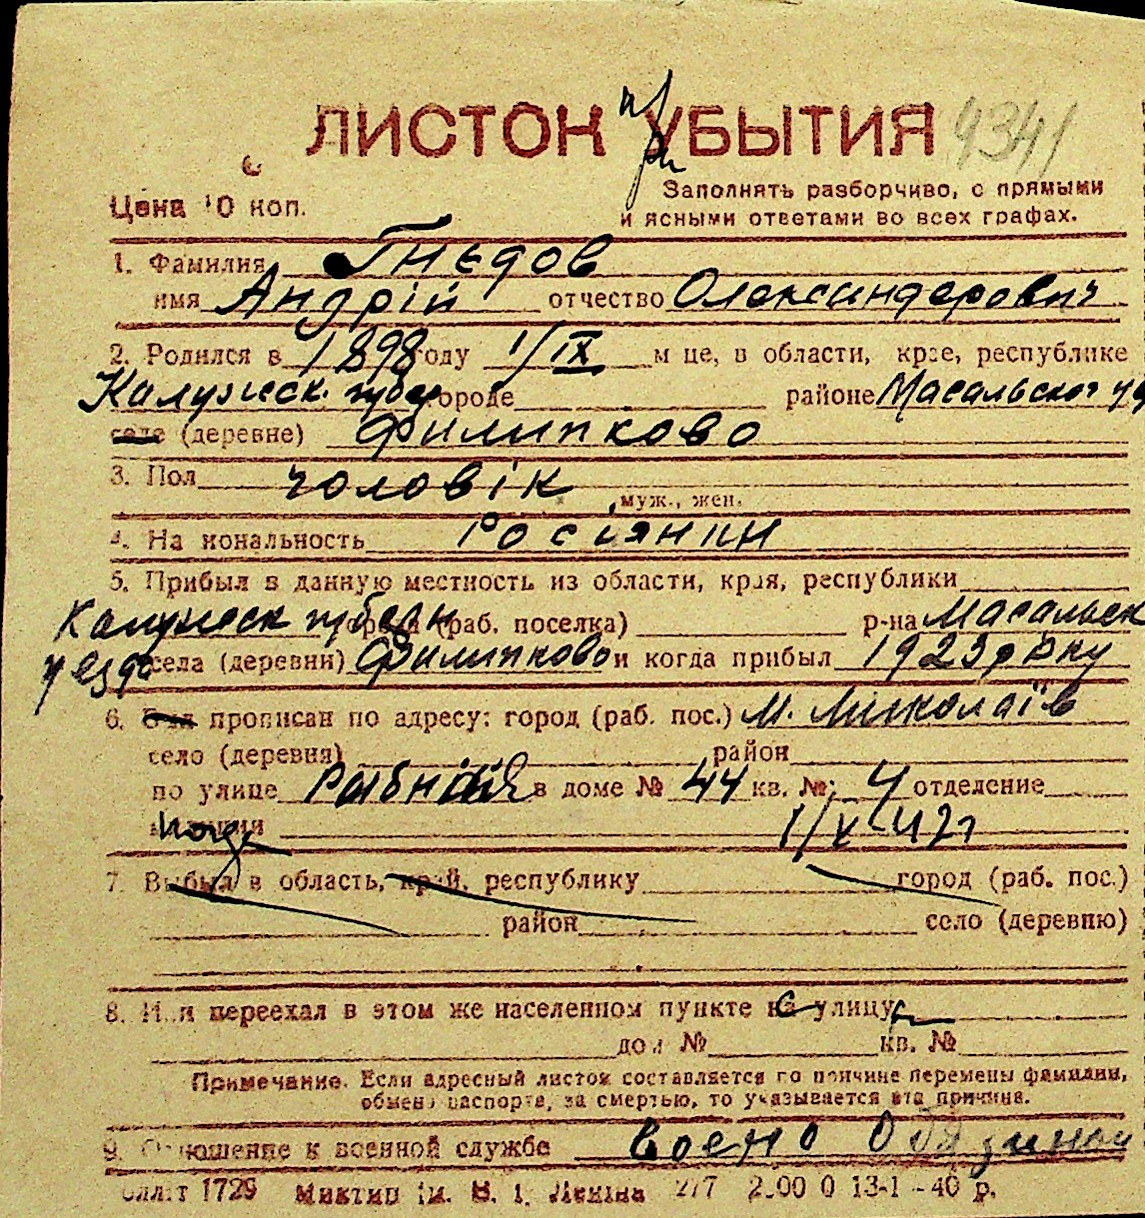 ЛИСТОК УБЫТИЯ 4341
Цена 10 коп.
Заполнять разборчиво, с прямыми
и ясными ответами во всех графах.
1. Фамилия Гнєдов
имя Андрій отчество Олександерович
2. Родился в 1898 году 1/IX м це, в области, крае, республике
Калужеск. губер городе районе Масальског
селе (деревне) Филипково
3. Пол чоловік
муж., жен.
4. Национальность Росіянин
5. Прибыл в данную местность из области, края, республики
Калужеск губерн города (раб. поселка) р-на Масальск
уезд села (деревни) Филипково и когда прибыл 1923 року
6. Был прописан по адресу: город (раб. пос.) м. Миколаїв
село (деревня) район
по улице Рыбная в доме № 44 кв. № 4 отделение
милиции 1/V-42
7. Выбыл в область, край, республику город (раб. пос.)
район село (деревню)
8. Или переехал в этом же населенном пункте на улицу
дом № кв. №
Примечание. Если адресный листок составляется по причине перемены фамилии,
обмена паспорта, за смертью, то указывается эта причина.
9. Отношение к военной службе воено Обязаной
1729 им. В. І. Леніна 277 13-1-40 р.